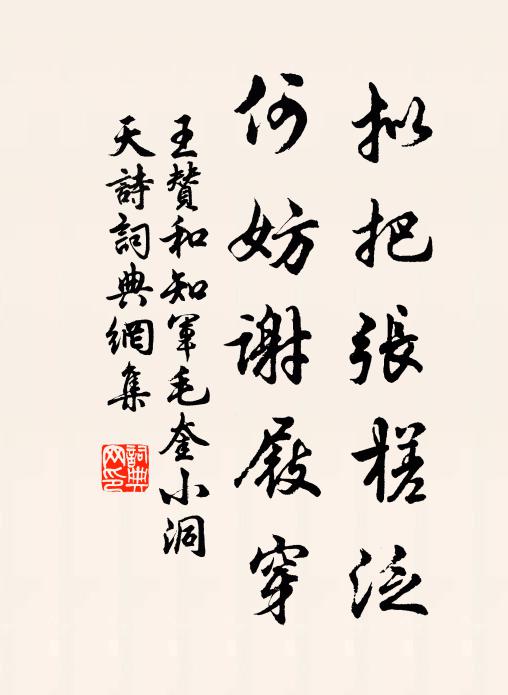 拟把張槎泛
何妨謝屐穿
王賛和知軍毛奎小洞
天詩詞典網集
詞典
网印